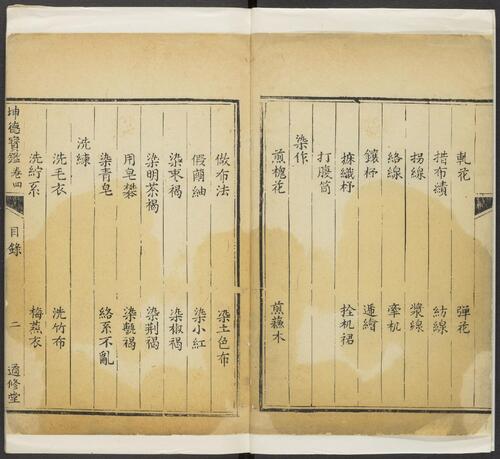 軋花 彈花
揩布績 紡線
拐線 漿線
絡線 牽机
鑲杼 遞繒
捺織杼 拴机裙
打腹筒
染作
煎槐花 煎蘓木
做布法 染土色布
假蘭紬 染小紅
染枣褐 染椒褐
染明茶褐 染荆褐
用皂礬 染氊褐
染青皂 絡系不亂
洗練
洗毛衣 洗竹布
洗紵系 梅蒸衣
坤德寶鑑 卷四 目錄 二 適修堂